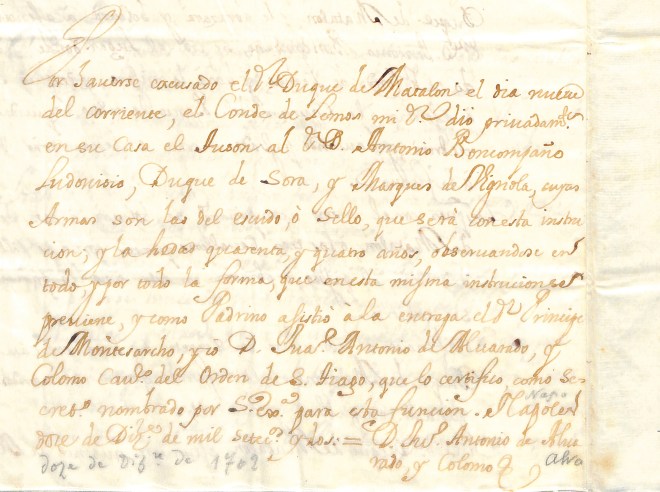 Por haverse escusado el Sr. Duque de Matalon el dia nueve
del corriente, el Conde de Lemos mi Sr. dio privadamte.
en su Casa el Tuson al Sr. D. Antonio Boncompaño
Ludovisio, Duque de Sora, y Marques de Vignola, cuyas
Armas son las del escudo, ò Sello, que serà con esta instruc
cion; y la hedad quarenta, y quatro años, observandose en
todo, y por todo la forma, que en esta misma instruccion se
previene, y como Padrino assistiò à la entrega el Sr. Principe
de Montesarcho, y io D. Juan. Antonio de Alvarado, y
Colomo Cavro. del Orden de S. Tiago, que lo certifico, como Se
cretro. nombrado por S. Exa. para esta funcion. Napoles
doze de Dizre. de mil setecs. y dos = D. Jun. Antonio de Alva
rado, y Colomo
Napo
doze de Dizre. de 1702
Alva